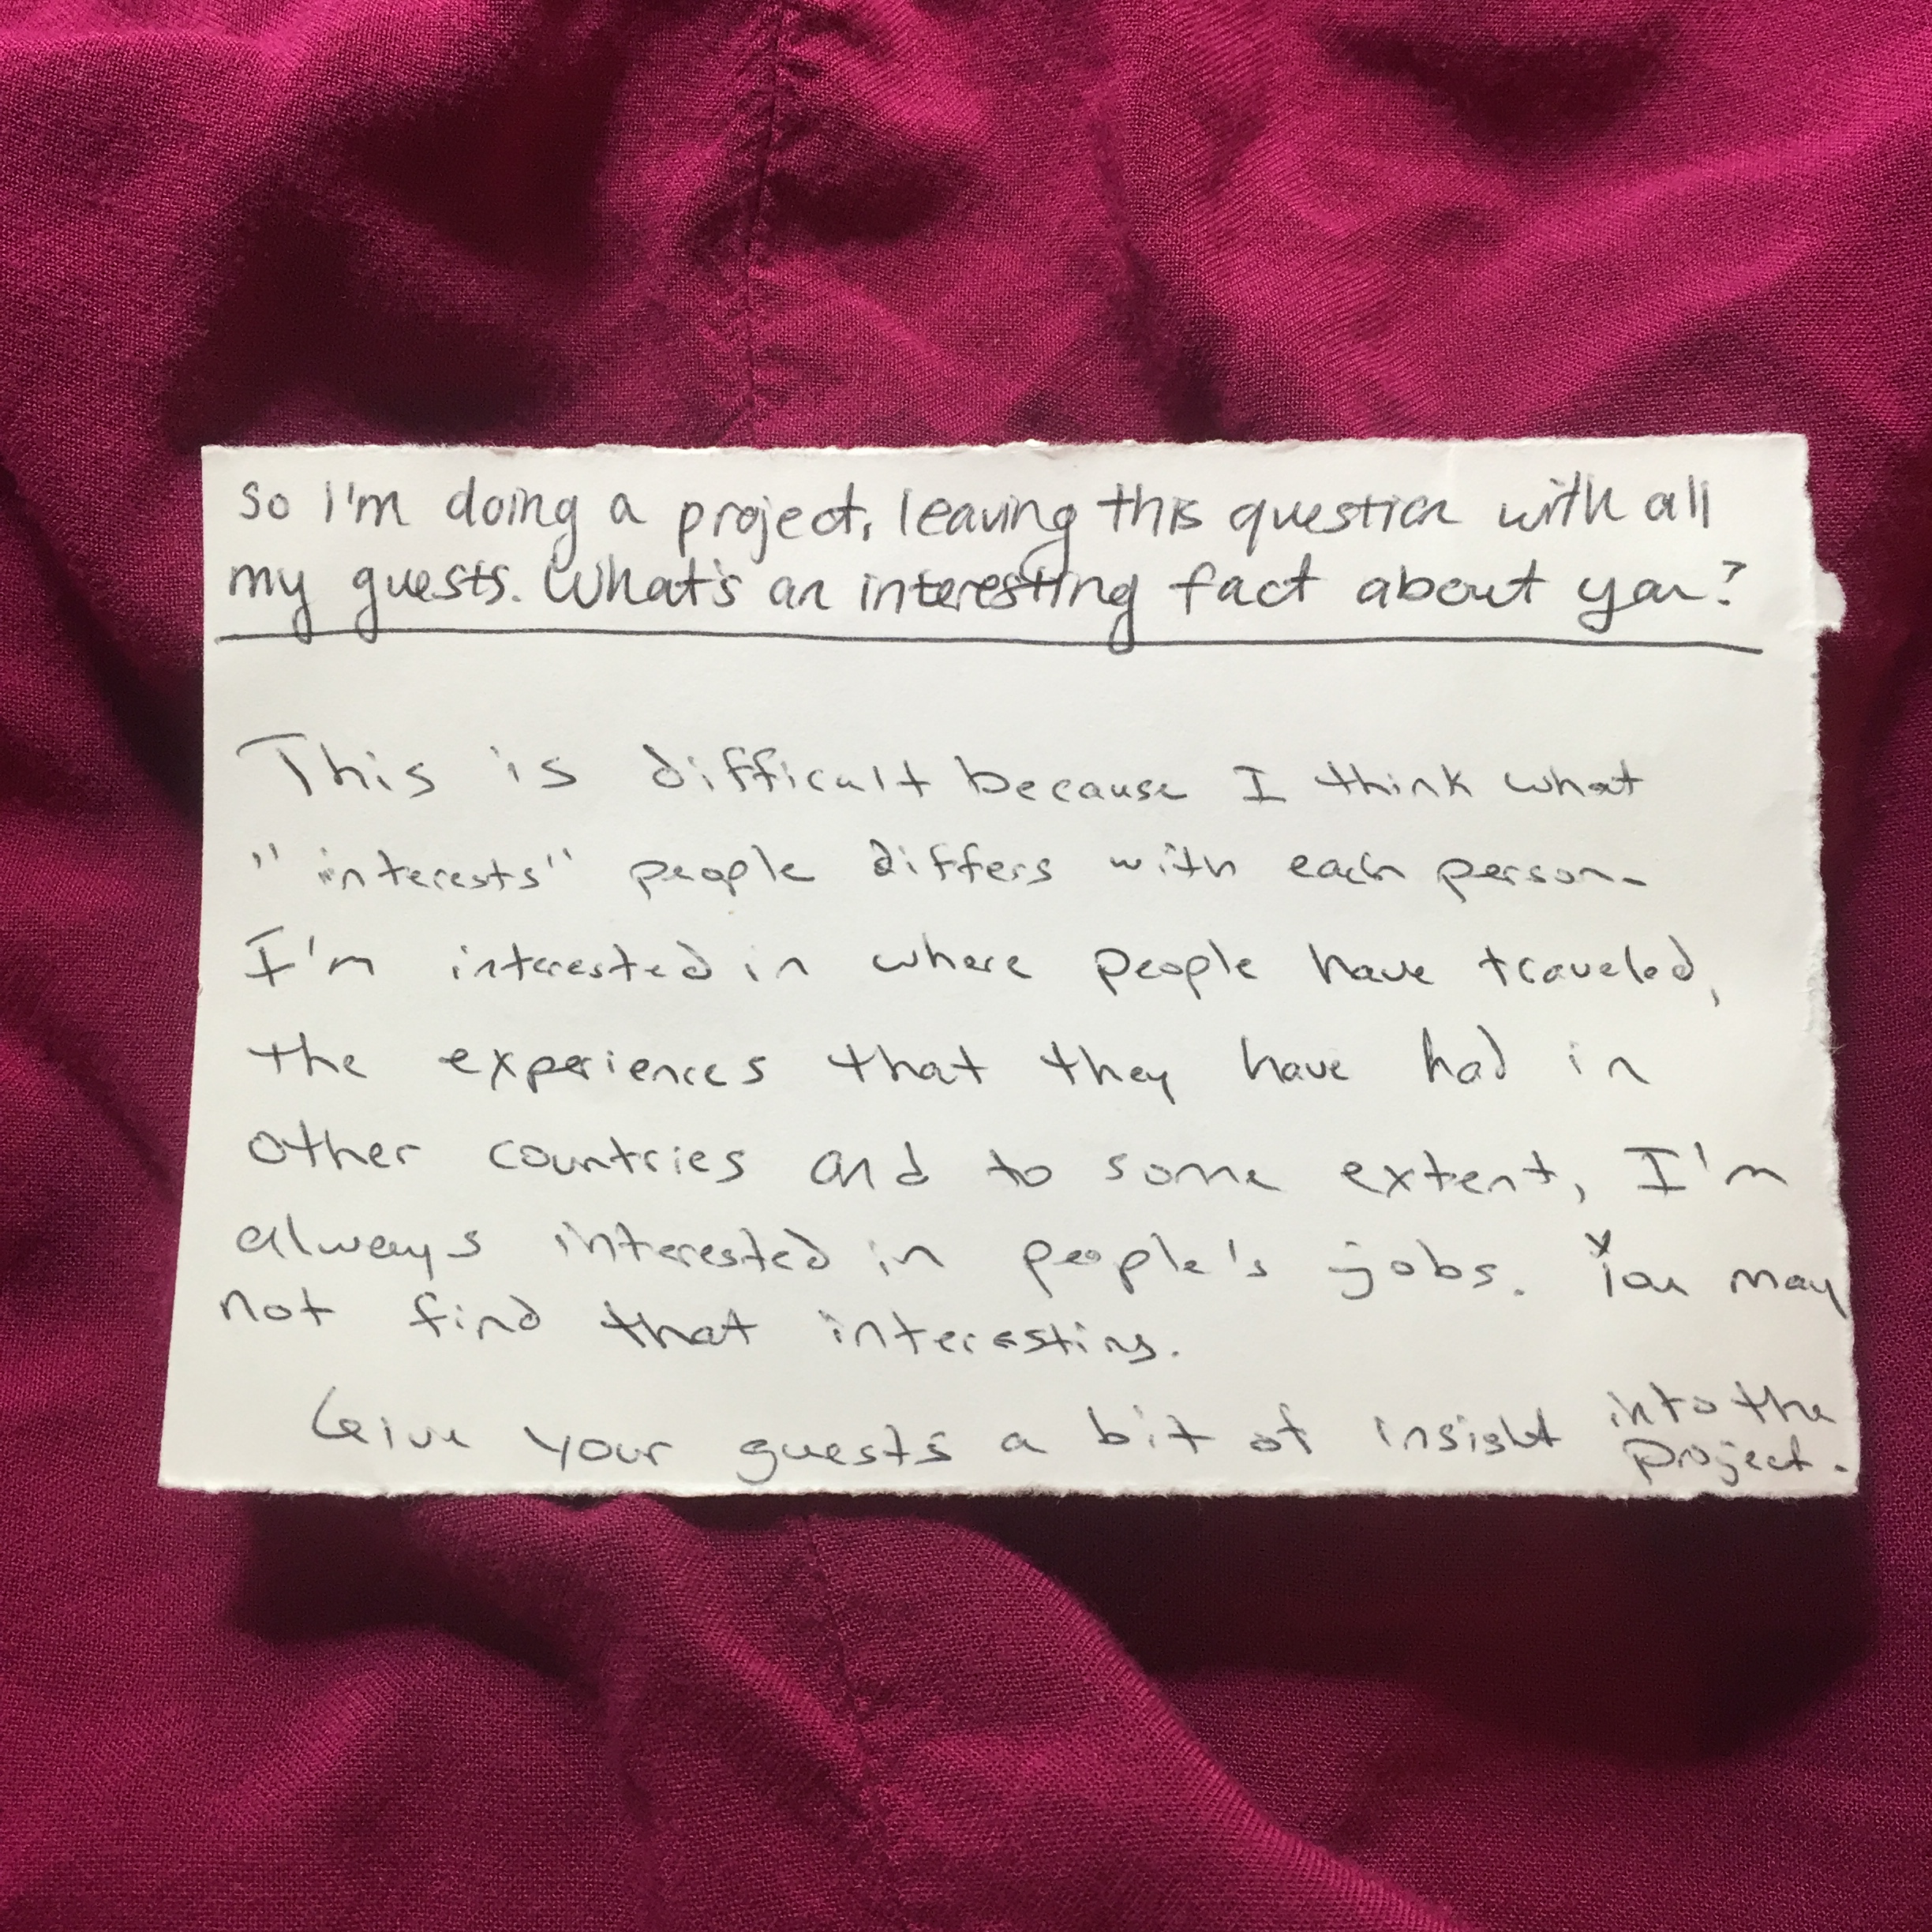 So I'm doing a project, leaving this question with all
my guests. What's an interesting fact about you?
This is difficult because I think what
"interests" people differs with each person.
I'm interested in where people have traveled,
the experiences that they have had in
other countries and to some extent, I'm
always interested in people's jobs. You may
not find that interesting.
Give your guests a bit of insight into the
project.